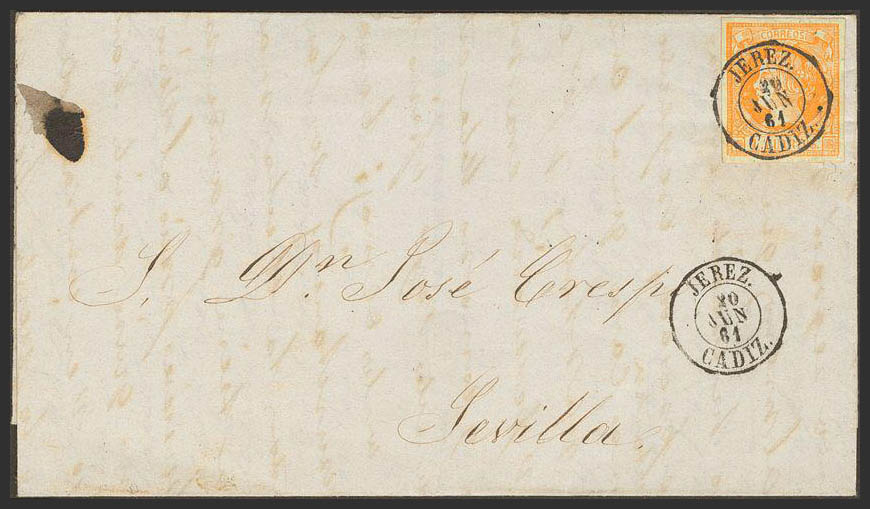 CORREOS
JEREZ.
20
JUN
61
CADIZ.
S. Dn. José Crespo
Sevilla.
JEREZ.
20
JUN
61
CADIZ.